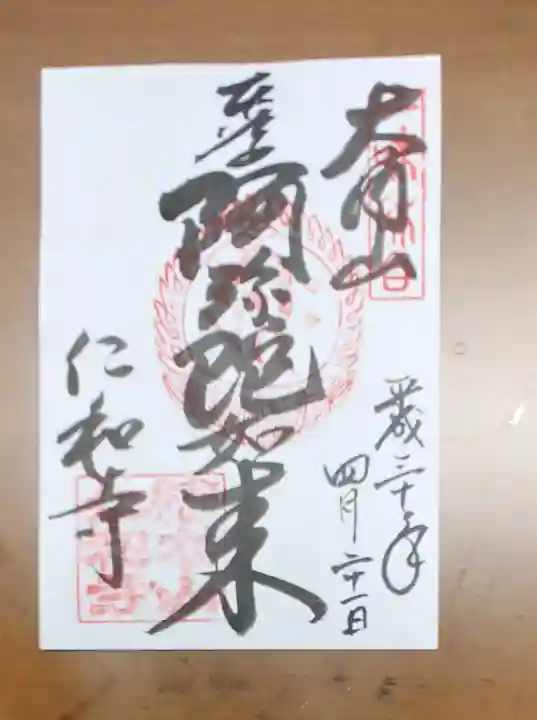 大内山
平成三十年
四月二十一日
本尊
阿弥陀如来
仁和寺